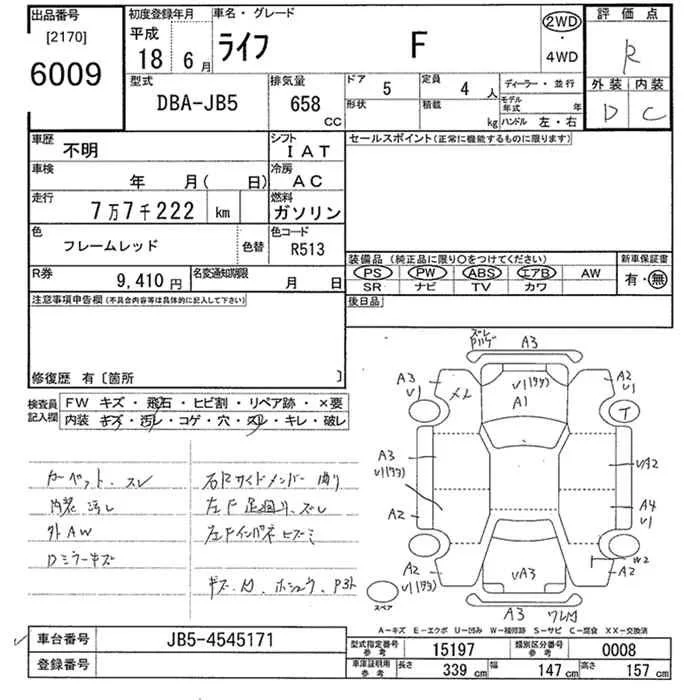 出品番号
[2170]
6009
初度登録年月
平成
18 6月
車名・グレード
ライフ F
2WD
・
4WD
評価点
R
外装 内装
D C
型式
DBA-JB5
排気量
658
CC
ドア
5
定員
4 人
形状
積載
kg
ディーラー・並行
モデル年式 年
ハンドル 左・右
車歴
不明
シフト
IAT
セールスポイント(正常に機能するものに限ります)
車検
年 月( 日)
冷房
AC
走行
7万7千222 km
燃料
ガソリン
色
フレームレッド
色替
色コード
R513
装備品(純正品に限り○をつけてください)
新車保証書
PS PW ABS エアB AW
有・無
SR ナビ TV カワ
R券
9,410 円
名変通知期限
月 日
後日品
注意事項申告欄(不具合内容等は具体的に記入して下さい)
修復歴 有〔箇所 〕
検査員
記入欄
FW キズ・飛石・ヒビ割・リペア跡・×要
内装 キズ・汚レ・コゲ・穴・スレ・キレ・破レ
カーペット、スレ
内装 汚し
外AW
Dミラーキズ
右Rサイドメンバー曲り
左F足廻り、ズレ
左Fインパネヒズミ
A3
A3
U1
メレ
A1
A2
U1
T
A3
A2
UA2
A4
U1
W2
A2
A2
UA3
A3
スペア
A-キズ E-エクボ U-凹み W-補修跡 S-サビ C-腐食 XX-交換済
車台番号
JB5-4545171
登録番号
型式指定番号
参考
15197
類別区分番号
参考
0008
車庫証明用
参考
長さ
339 cm
幅
147 cm
高さ
157 cm